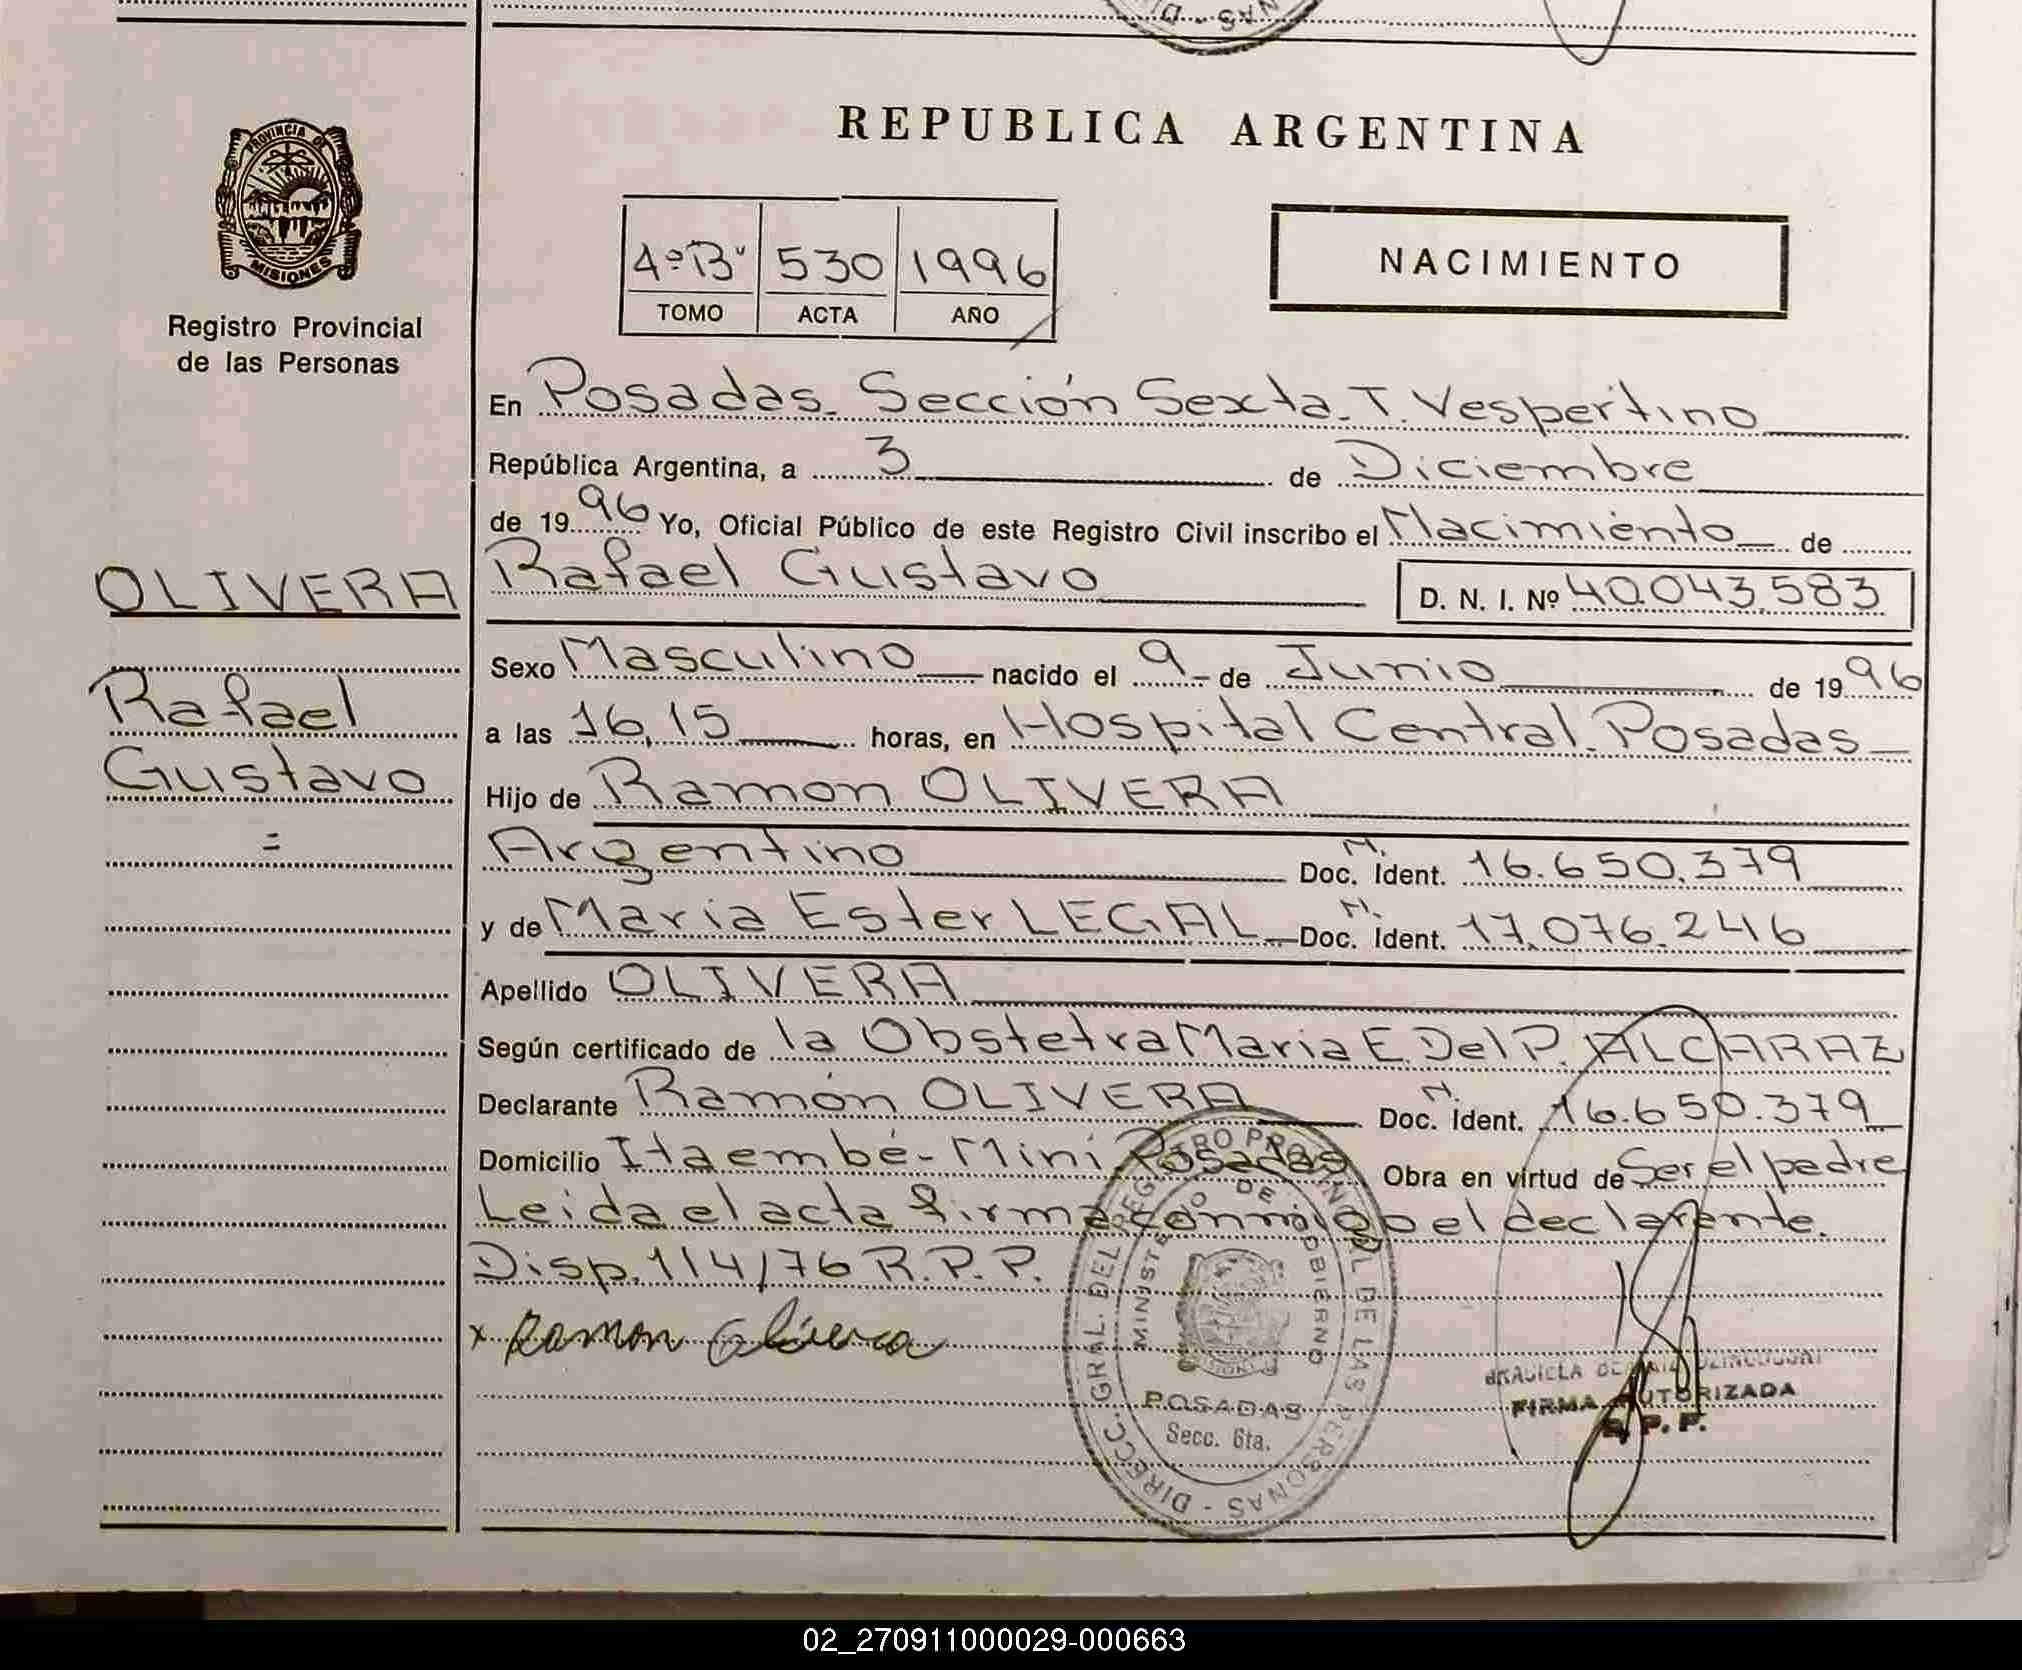 REPUBLICA ARGENTINA
PROVINCIA DE
MISIONES
Registro Provincial
de las Personas
4º "B" 530 1996
TOMO ACTA AÑO
NACIMIENTO
En Posadas. Sección Sexta. T. Vespertino
República Argentina, a 3 de Diciembre
de 1996 Yo, Oficial Público de este Registro Civil inscribo el Nacimiento de
OLIVERA
Rafael Gustavo D. N. I. Nº 40.043.583
Sexo Masculino nacido el 9 de Junio de 1996
Rafael
a las 16,15 horas, en Hospital Central. Posadas
Gustavo
=
Hijo de Ramon OLIVERA
Argentino Doc. N. Ident. 16.650.379
y de Maria Ester LEGAL Doc. N. Ident. 17.076.246
Apellido OLIVERA
Según certificado de la Obstetra Maria E. Del P. ALCARAZ
Declarante Ramón OLIVERA Doc. N. Ident. 16.650.379
Domicilio Itaembé-Miní Posadas Obra en virtud de Ser el padre
Leida el acta firma conmigo el declarante.
Disp. 114/76 R.P.P.
x Ramon Olivera
DIRECC. GRAL. DEL REGISTRO PROVINCIAL DE LAS PERSONAS -
MINISTERIO DE GOBIERNO
POSADAS
Secc. 6ta.
FIRMA AUTORIZADA
R. P. P.
02_270911000029-000663